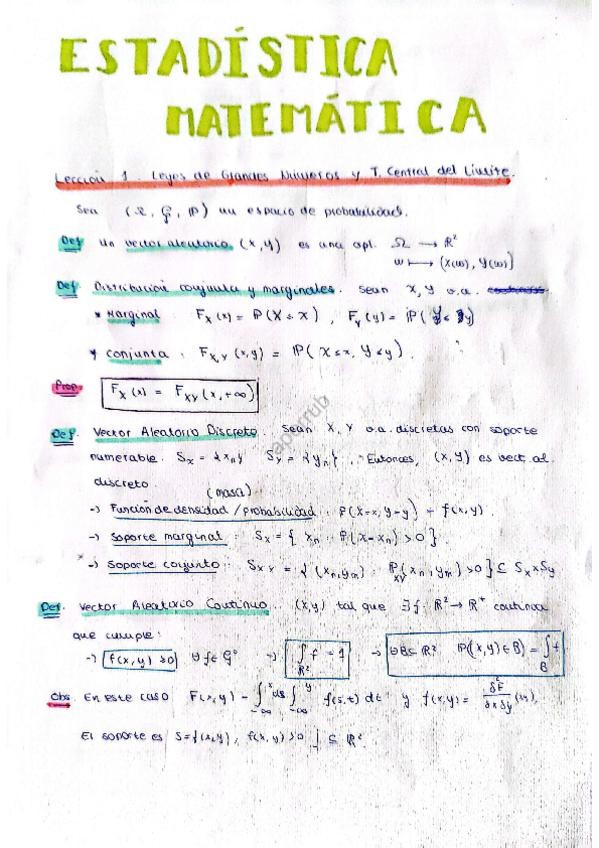 ESTADÍSTICA
MATEMÁTICA
Lección 1. Leyes de Grandes Números y T. Central del Límite.
Sea (Ω, G, P) un espacio de probabilidad.
Def un vector aleatorio (X,Y) es una apl. Ω → R²
ω ↦ (X(ω), Y(ω))
Def. Distribución conjunta y marginales. Sean X, Y v.a.
* Marginal: F_X(x) = P(X ≤ x), F_Y(y) = P(Y ≤ y)
* Conjunta: F_X,Y(x,y) = P(X ≤ x, Y ≤ y).
Prop. F_X(x) = F_XY(x,+∞)
Def. Vector Aleatorio Discreto. Sean X, Y v.a. discretas con soporte
numerable. S_X = {x_n} S_Y = {y_n}. Entonces, (X,Y) es vect. al.
discreto.
(masa)
-) Función de densidad / probabilidad: P(X=x, Y=y) = f(x,y).
-) Soporte marginal: S_X = { x_n : P(X=x_n) > 0 }.
-) Soporte conjunto: S_XY = { (x_n, y_m) : P_XY(x_n, y_m) > 0 } ⊆ S_X x S_Y
Def. Vector Aleatorio Continuo (X,Y) tal que ∃ f: R² → R⁺ continua
que cumple:
-) f(x,y) ≥ 0 -) ∫_R² f = 1 -) ∀B ⊆ R² P((X,Y) ∈ B) = ∫_B f
Obs. En este caso F(x,y) = ∫_-∞^x ds ∫_-∞^y f(s,t) dt y f(x,y) = ∂²F/∂x∂y
El soporte es S = {(x,y), f(x,y) > 0} ⊆ R².